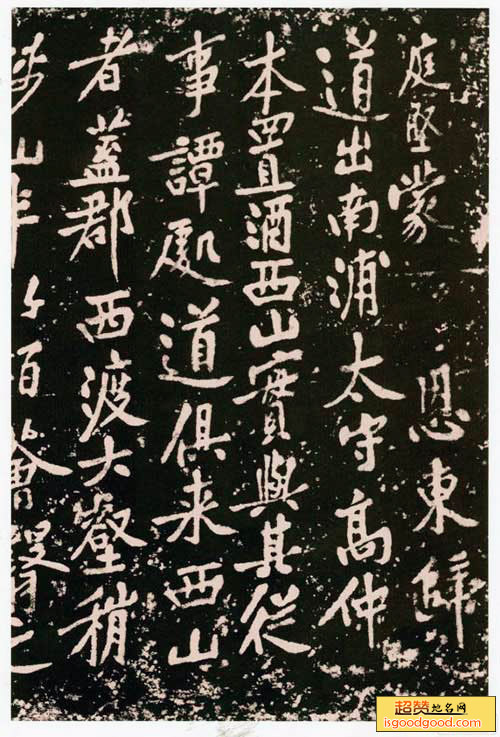 庭堅蒙恩東歸
道出南浦太守高仲
本置酒西山實與其從
事譚處道俱来西山
者蓋郡西渡大壑稍
陟山半竹柏薈翳之
超赞地名网
isgoodgood.com